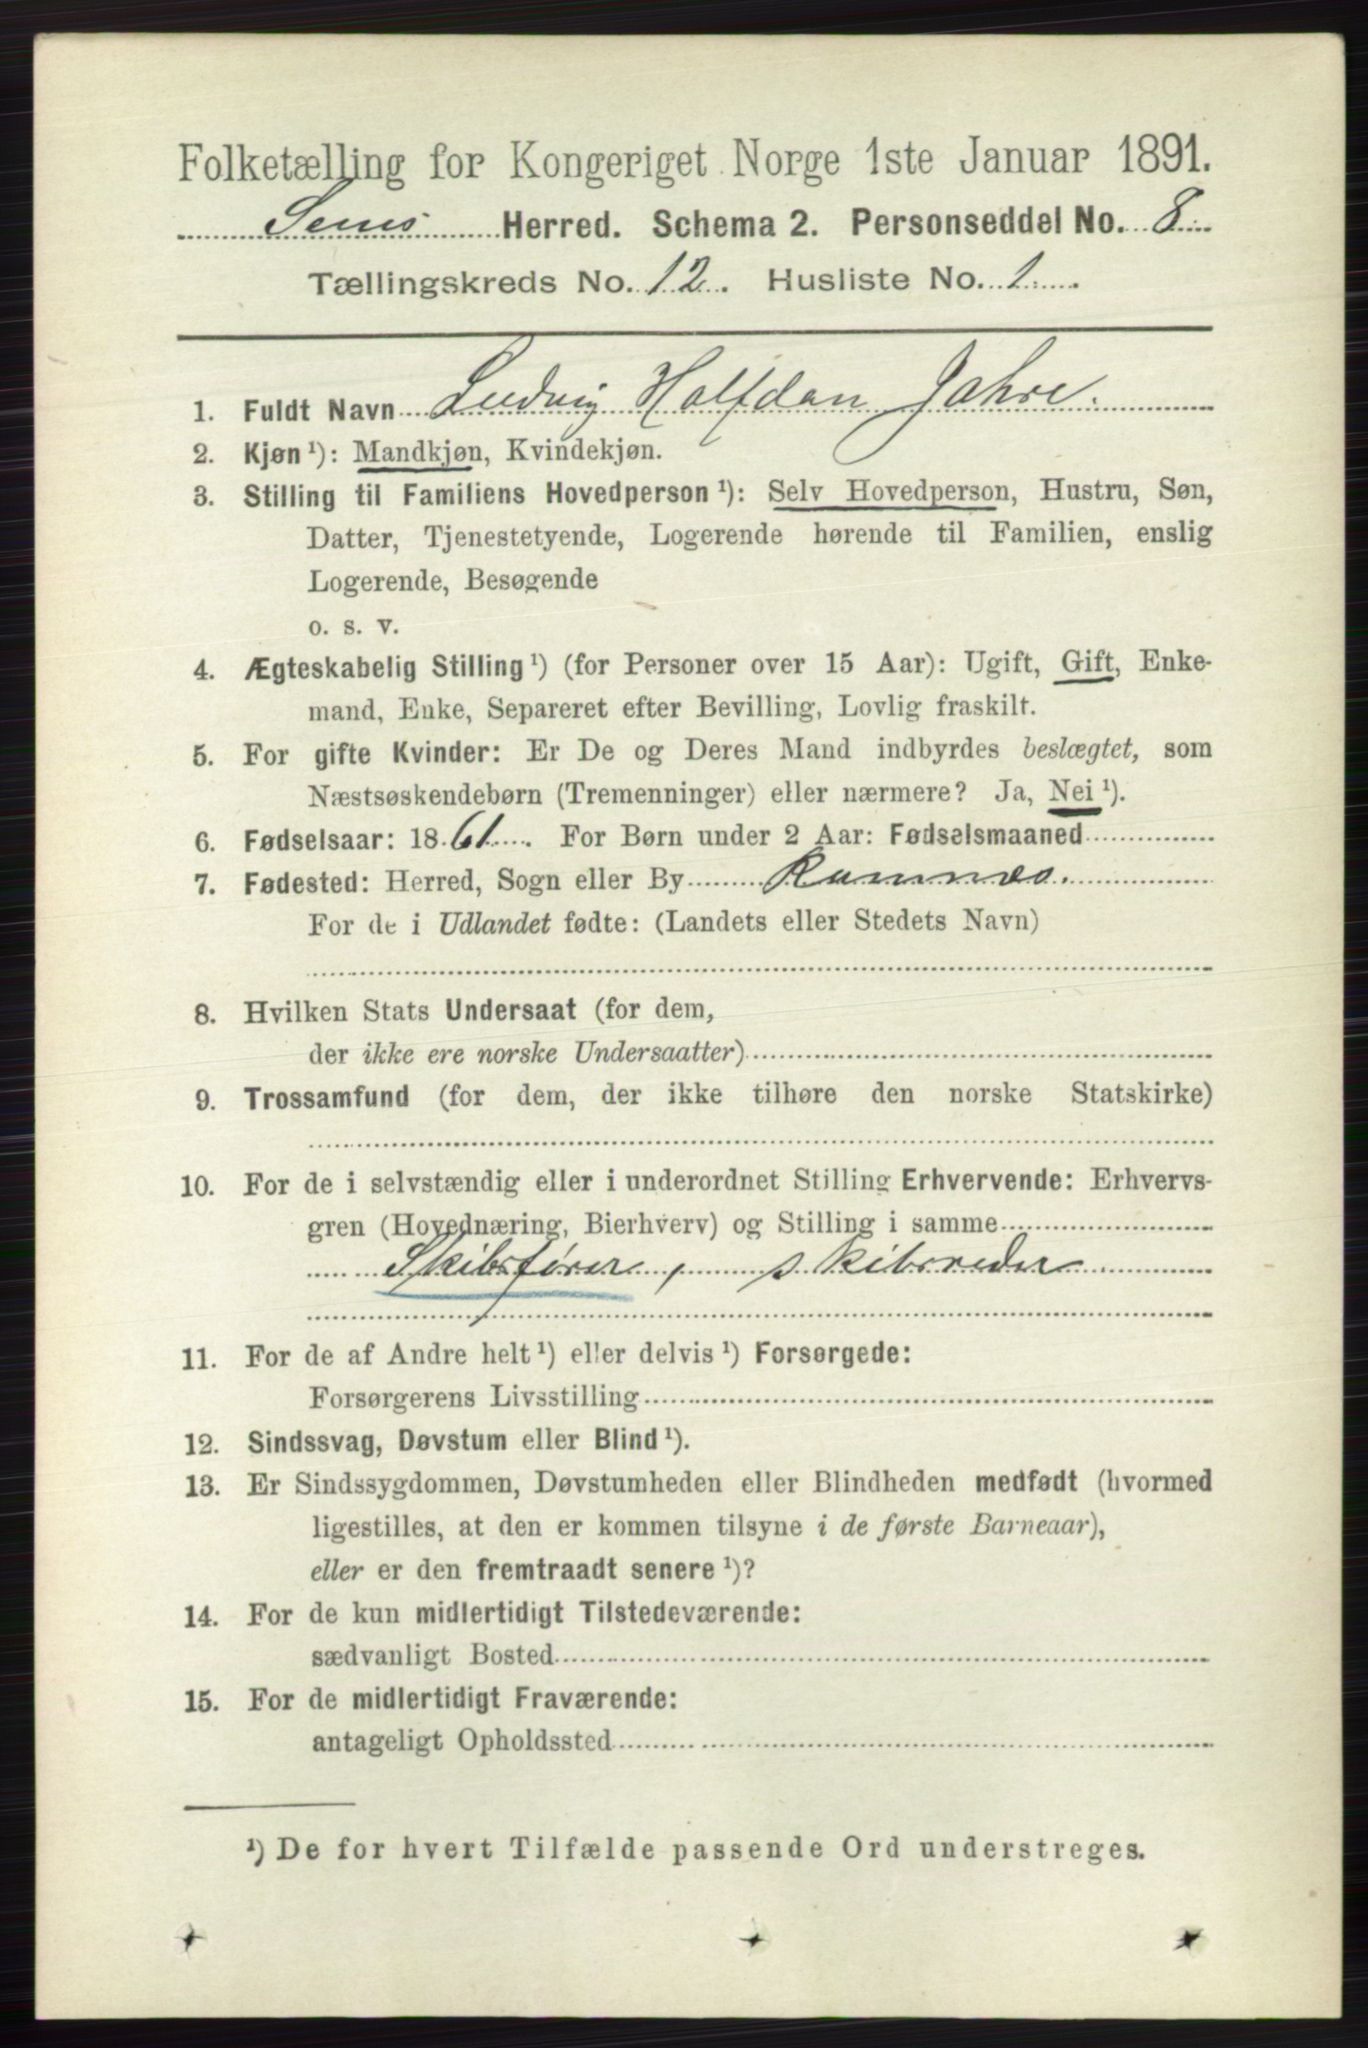 Folketælling for Kongeriget Norge 1ste Januar 1891.
Sems Herred. Schema 2. Personseddel No. 8
Tællingskreds No. 12. Husliste No. 1
1. Fuldt Navn Ludvig Halfdan Jahre.
2. Kjøn ¹): Mandkjøn, Kvindekjøn.
3. Stilling til Familiens Hovedperson ¹): Selv Hovedperson, Hustru, Søn,
Datter, Tjenestetyende, Logerende hørende til Familien, enslig
Logerende, Besøgende
o. s. v.
4. Ægteskabelig Stilling ¹) (for Personer over 15 Aar): Ugift, Gift, Enke-
mand, Enke, Separeret efter Bevilling, Lovlig fraskilt.
5. For gifte Kvinder: Er De og Deres Mand indbyrdes beslægtet, som
Næstsøskendebørn (Tremenninger) eller nærmere? Ja, Nei ¹).
6. Fødselsaar: 1861. For Børn under 2 Aar: Fødselsmaaned
7. Fødested: Herred, Sogn eller By Ramnæs.
For de i Udlandet fødte: (Landets eller Stedets Navn)
8. Hvilken Stats Undersaat (for dem,
der ikke ere norske Undersaatter)
9. Trossamfund (for dem, der ikke tilhøre den norske Statskirke)
10. For de i selvstændig eller i underordnet Stilling Erhvervende: Erhvervs-
gren (Hovednæring, Bierhverv) og Stilling i samme
Skibsfører, skibsreder
11. For de af Andre helt ¹) eller delvis ¹) Forsørgede:
Forsørgerens Livsstilling
12. Sindssvag, Døvstum eller Blind ¹).
13. Er Sindssygdommen, Døvstumheden eller Blindheden medfødt (hvormed
ligestilles, at den er kommen tilsyne i de første Barneaar),
eller er den fremtraadt senere ¹)?
14. For de kun midlertidigt Tilstedeværende:
sædvanligt Bosted
15. For de midlertidigt Fraværende:
antageligt Opholdssted
¹) De for hvert Tilfælde passende Ord understreges.